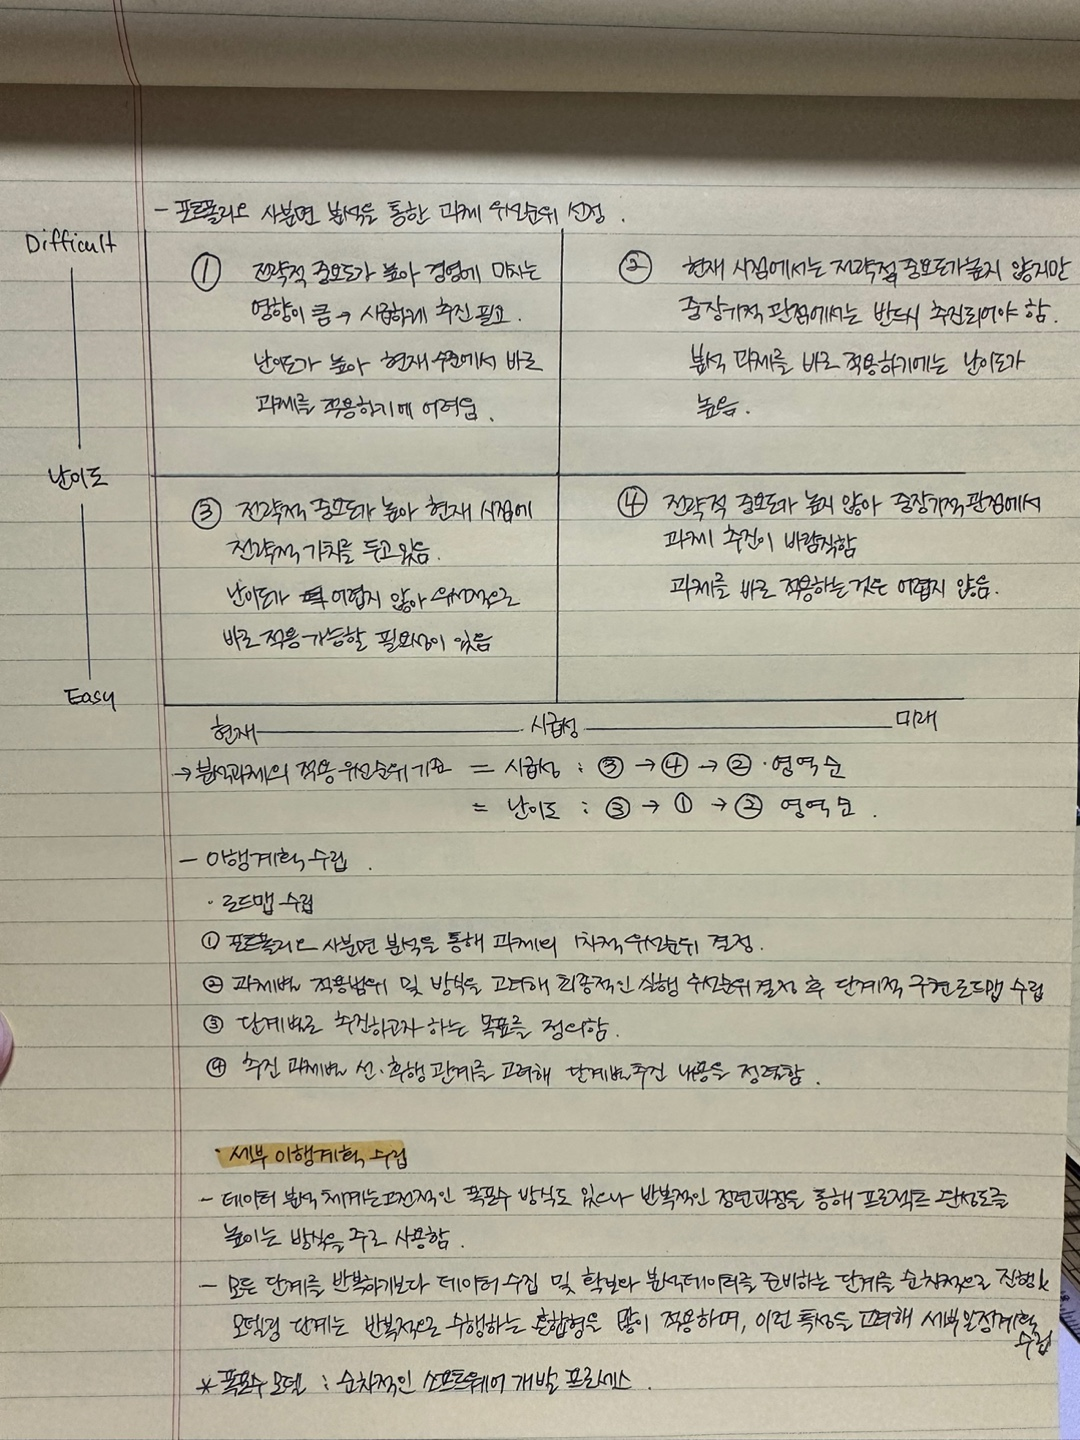 - 포트폴리오 사분면 분석을 통한 과제 우선순위 선정.
Difficult
① 전략적 중요도가 높아 경영에 미치는
영향이 큼 → 시급하게 추진 필요.
난이도가 높아 현재 수준에서 바로
과제를 적용하기에 어려움.
② 현재 시점에서는 전략적 중요도가 높지 않지만
중장기적 관점에서는 반드시 추진되어야 함.
분석 과제를 바로 적용하기에는 난이도가
높음.
난이도
③ 전략적 중요도가 높아 현재 시점에
전략적 가치를 두고 있음.
난이도가 어렵지 않아 우선적으로
바로 적용 가능할 필요성이 있음
④ 전략적 중요도가 높지 않아 중장기적 관점에서
과제 추진이 바람직함
과제를 바로 적용하는 것은 어렵지 않음.
Easy
현재 시급성 미래
→ 분석과제의 적용 우선순위 기준 = 시급성 : ③ → ④ → ② · 영역 순
= 난이도 : ③ → ① → ② 영역 순.
- 이행계획 수립.
· 로드맵 수립
① 포트폴리오 사분면 분석을 통해 과제의 1차적 우선순위 결정.
② 과제별 적용범위 및 방식을 고려해 최종적인 실행 우선순위 결정 후 단계적 구현 로드맵 수립
③ 단계별로 추진하고자 하는 목표를 정의함.
④ 추진 과제별 선·후행 관계를 고려해 단계별 추진 내용을 정렬함.
· 세부 이행계획 수립
- 데이터 분석 체계는 고전적인 폭포수 방식도 있으나 반복적인 정련과정을 통해 프로젝트 완성도를
높이는 방식을 주로 사용함.
- 모든 단계를 반복하기보다 데이터 수집 및 확보와 분석데이터를 준비하는 단계를 순차적으로 진행
모델링 단계는 반복적으로 수행하는 혼합형을 많이 적용하며, 이런 특성을 고려해 세부 일정계획
수립
* 폭포수 모델 : 순차적인 소프트웨어 개발 프로세스.